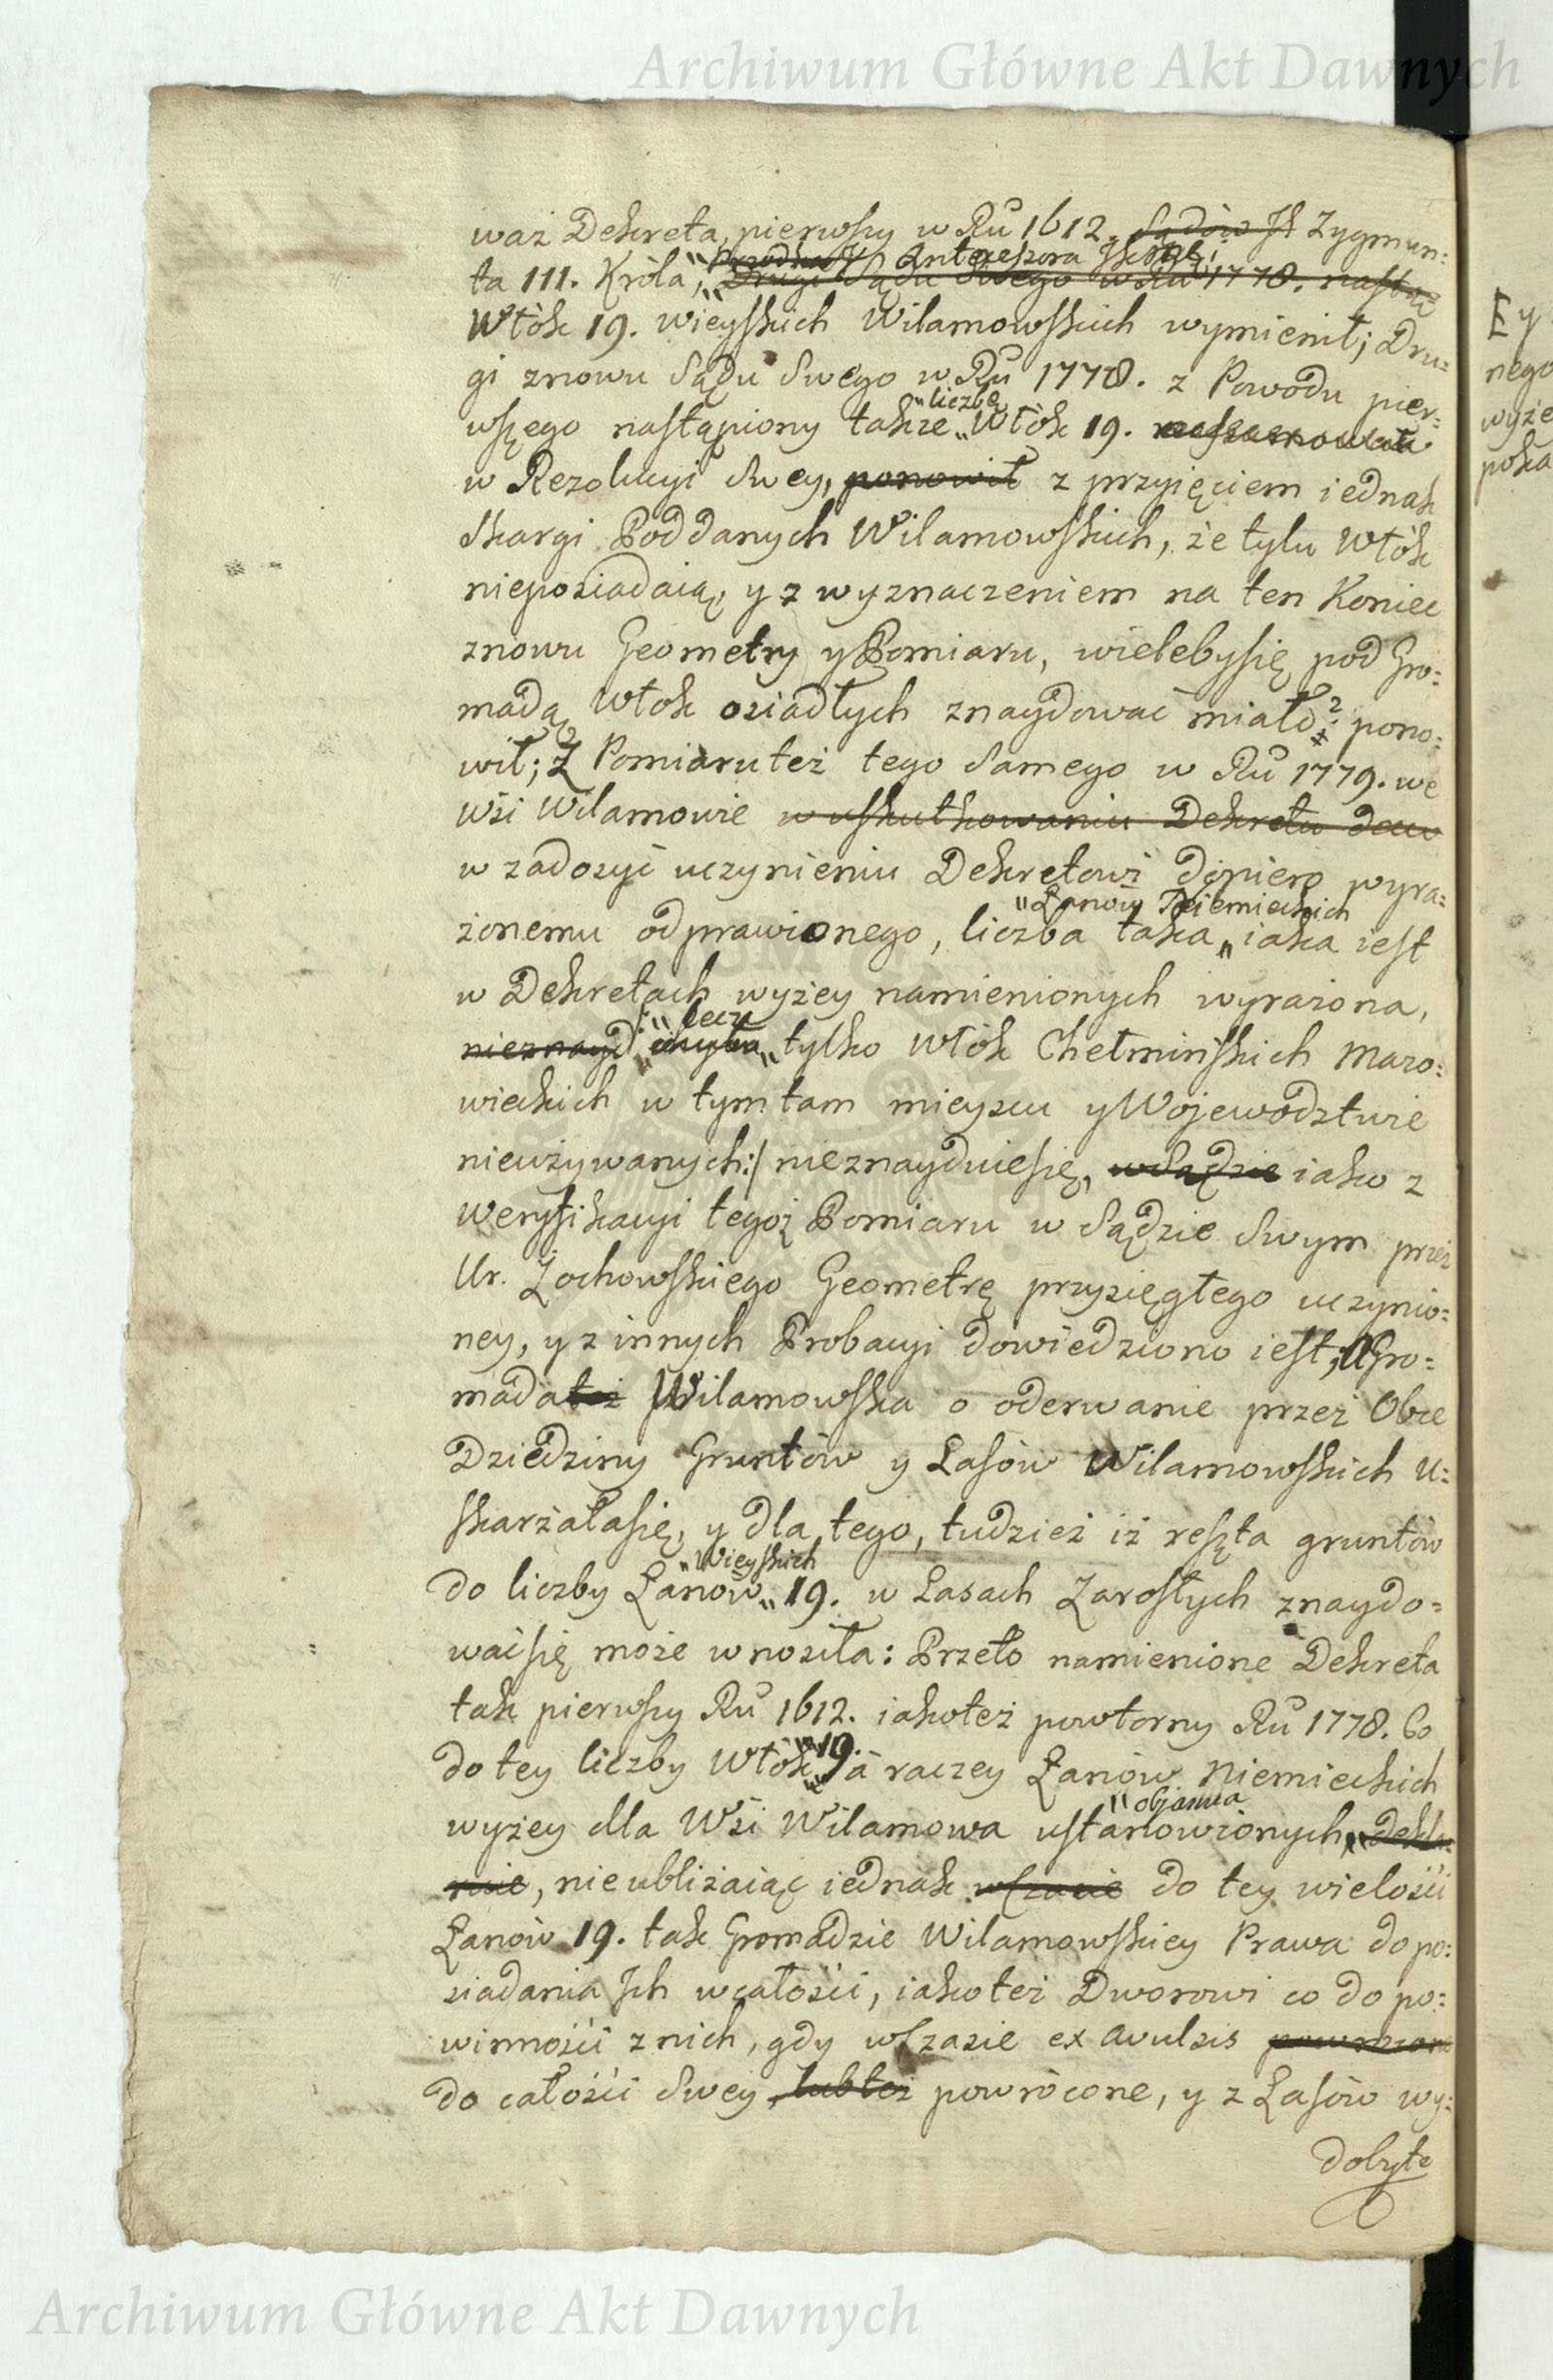 Archiwum Główne Akt Dawnych
waż Dekreta, pierwszy w Ru 1612. Sądów Zygmun=
ta III. Króla, Antecessora
Drugi Sądu Swego w Ru 1778. nastą
Włók 19. wieyskich Wilamowskich wymienił; Dru=
gi znowu Sądu Swego w Ru 1778. z Powodu pier=
"liczbę
wszego nastąpiony także „Włók 19.
w Rezolucyi Swey, ponowił z przyięciem iednak
Skargi Poddanych Wilamowskich, że tylu Włók
nieposiadaią, y z wyznaczeniem na ten Koniec
znowu Geometry y Pomiaru, wieleby się pod Gro=
madą Włok osiadłych znaydować miało? pono=
wił; Z Pomiaru też tego Samego w Ru 1779. we
Wsi Wilamowie w uskutkowaniu Dekretu
w zadosyć uczynieniu Dekretowi dopiero wyra=
"Łanów Niemieckich
żonemu odprawionego, liczba taka „ iaka iest
w Dekretach wyżey namienionych wyrażona,
"lecz
nieznayd chyba „ tylko Włók Chełmińskich Mazo=
wieckich w tym tam mieyscu y Województwie
nieużywanych:/ nieznayduie się, w Sądzie iako z
Weryfikacyi tegoż Pomiaru w Sądzie Swym przez
Ur. Żochowskiego Geometrę przysięgłego uczynio=
ney, y z innych Probacyi dowiedziono iest; A Gro=
mada też Wilamowska o oderwanie przez Obce
Dziedziny Gruntów y Lasów Wilamowskich u=
skarżała się, y dla tego, tudzież iż reszta gruntów
"Wieyskich
do liczby Łanów „ 19. w Lasach Zarosłych znaydo=
wać się może wnosiła: Przeto namienione Dekreta
tak pierwszy Ru 1612. iakoteż powtorny Ru 1778. Co
"19.
do tey liczby Włók „ á raczey Łanów Niemieckich
"obiaśnia
wyżey dla Wsi Wilamowa ustanowionych, „ dekla=
ruie, nie ubliżaiąc iednak w czasie do tey wielości
Łanów 19. tak Gromadzie Wilamowskiey Prawa do po=
siadania Ich w całości, iakoteż Dworowi co do po=
winności z nich, gdy w czasie ex avulsis powrocon
do całości Swey, lub też powrócone, y z Lasów wy=
dobyte
Ey
nego
wyże
poka
Archiwum Główne Akt Dawnych